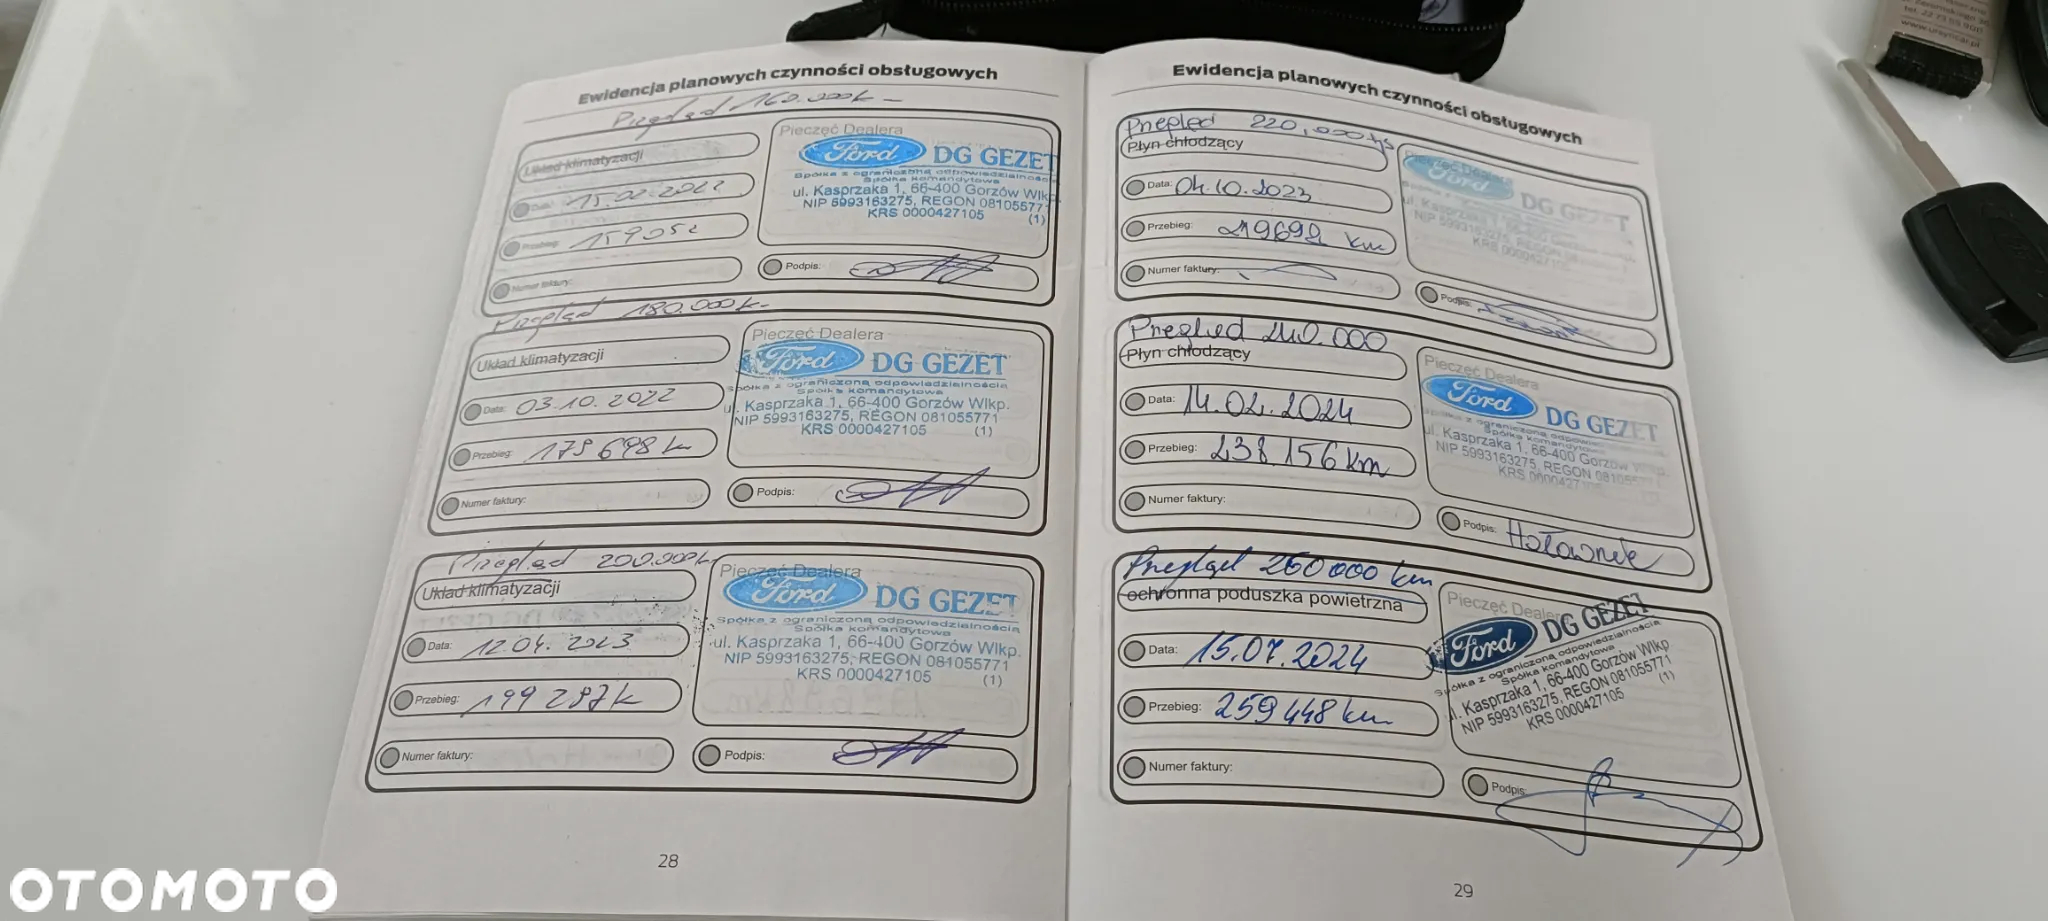 Ewidencja planowych czynności obsługowych
Przegląd 160.000k
Układ klimatyzacji
Data: 15.02.2022
Przebieg: 159052
Numer faktury:
Pieczęć Dealera
Ford DG GEZET
Spółka z ograniczoną odpowiedzialnością
Spółka komandytowa
ul. Kasprzaka 1, 66-400 Gorzów Wlkp
NIP 5993163275, REGON 081055771
KRS 0000427105 (1)
Podpis:
Przegląd 180.000k
Układ klimatyzacji
Data: 03.10.2022
Przebieg: 179698 km
Numer faktury:
Pieczęć Dealera
Ford DG GEZET
Spółka z ograniczoną odpowiedzialnością
Spółka komandytowa
ul. Kasprzaka 1, 66-400 Gorzów Wlkp.
NIP 5993163275, REGON 081055771
KRS 0000427105 (1)
Podpis:
Przegląd 200.000k
Układ klimatyzacji
Data: 12.04.2023
Przebieg: 199 287k
Numer faktury:
Pieczęć Dealera
Ford DG GEZET
Spółka z ograniczoną odpowiedzialnością
Spółka komandytowa
ul. Kasprzaka 1, 66-400 Gorzów Wlkp.
NIP 5993163275, REGON 081055771
KRS 0000427105 (1)
Podpis:
28
Ewidencja planowych czynności obsługowych
Przegląd 220,000 tys
Płyn chłodzący
Data: 04.10.2023
Przebieg: 219692 km
Numer faktury:
Pieczęć Dealera
Ford DG GEZET
ul. Kasprzaka 1, 66-400 Gorzów
NIP 5993163275, REGON
KRS 0000427105
Podpis:
Przegląd 240.000
Płyn chłodzący
Data: 14.02.2024
Przebieg: 238.156 km
Numer faktury:
Pieczęć Dealera
Ford DG GEZET
Spółka z ograniczoną odpowiedzialnością
Spółka komandytowa
ul. Kasprzaka 1, 66-400 Gorzów Wlkp.
NIP 5993163275, REGON 081055771
KRS 0000427105
Podpis:
Przegląd 260 000 km
ochronna poduszka powietrzna
Data: 15.07.2024
Przebieg: 259 448 km
Numer faktury:
Pieczęć Dealera
Ford DG GEZET
Spółka z ograniczoną odpowiedzialnością
Spółka komandytowa
ul. Kasprzaka 1, 66-400 Gorzów Wlkp
NIP 5993163275, REGON 081055771
KRS 0000427105 (1)
Podpis:
29
OTOMOTO